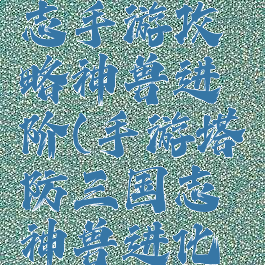 志手游攻
略神兽进
阶(手游塔
防三国志
神兽进化